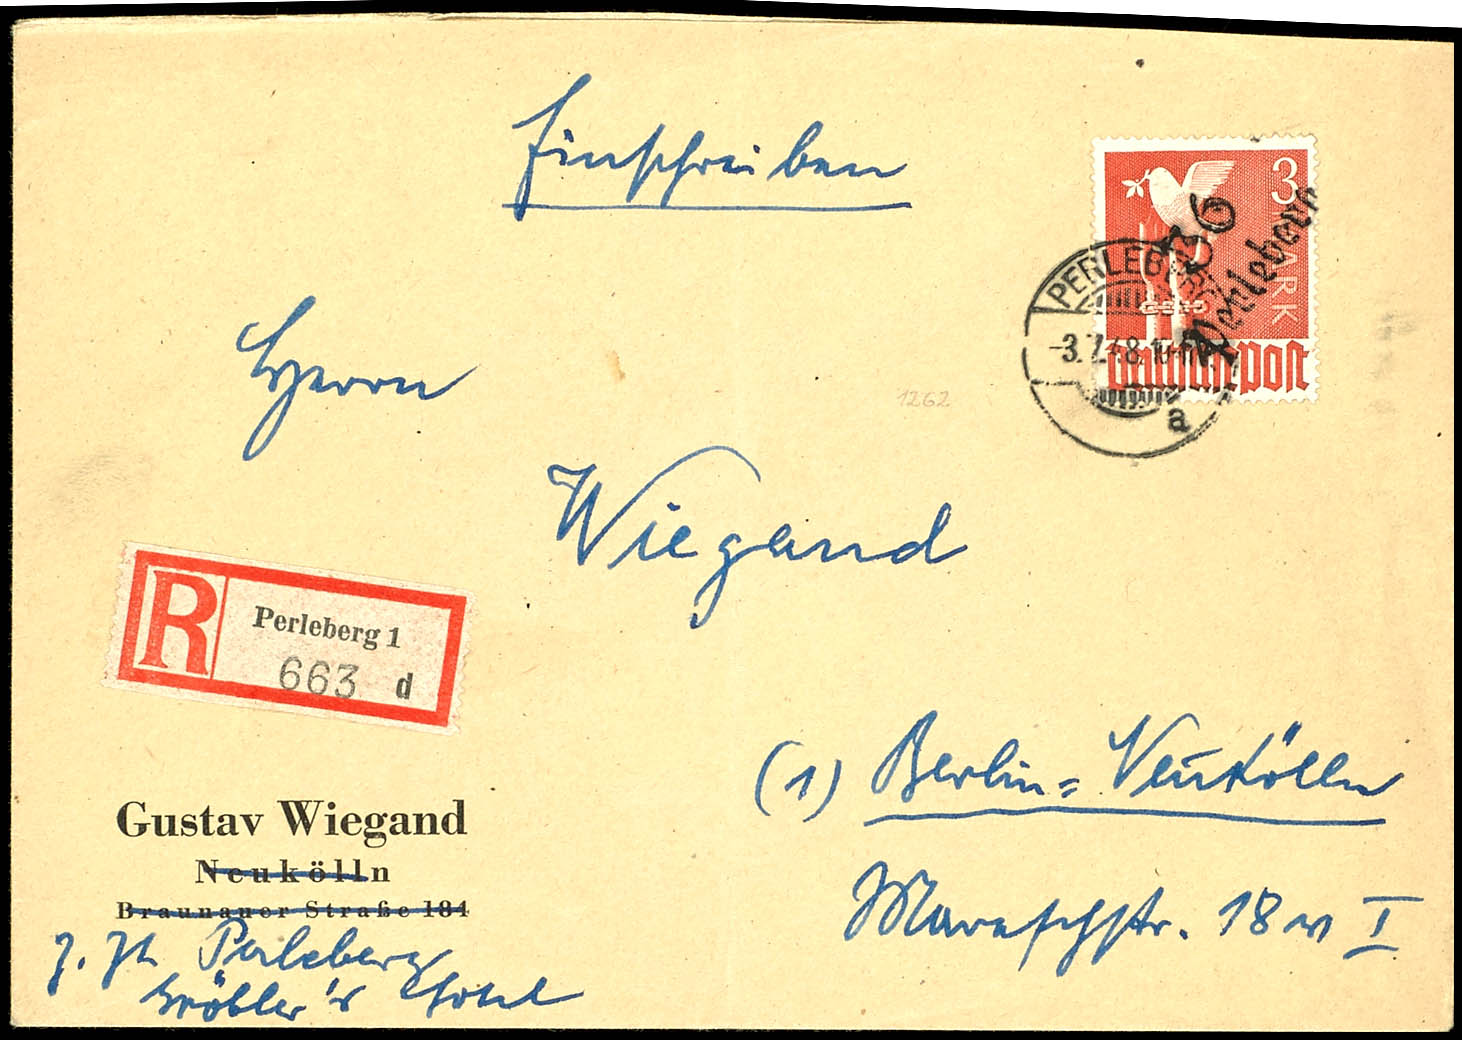 Einschreiben
3 MARK
36
Perleberg
PERLEBERG
-3.7.48.
a
Deutsche Post
Herrn
1262
Wiegand
R Perleberg 1
663 d
(1) Berlin-Neukölln
Mareschstr. 18 v I
Gustav Wiegand
Neukölln
Braunauer Straße 184
z. Zt. Perleberg
Hotel